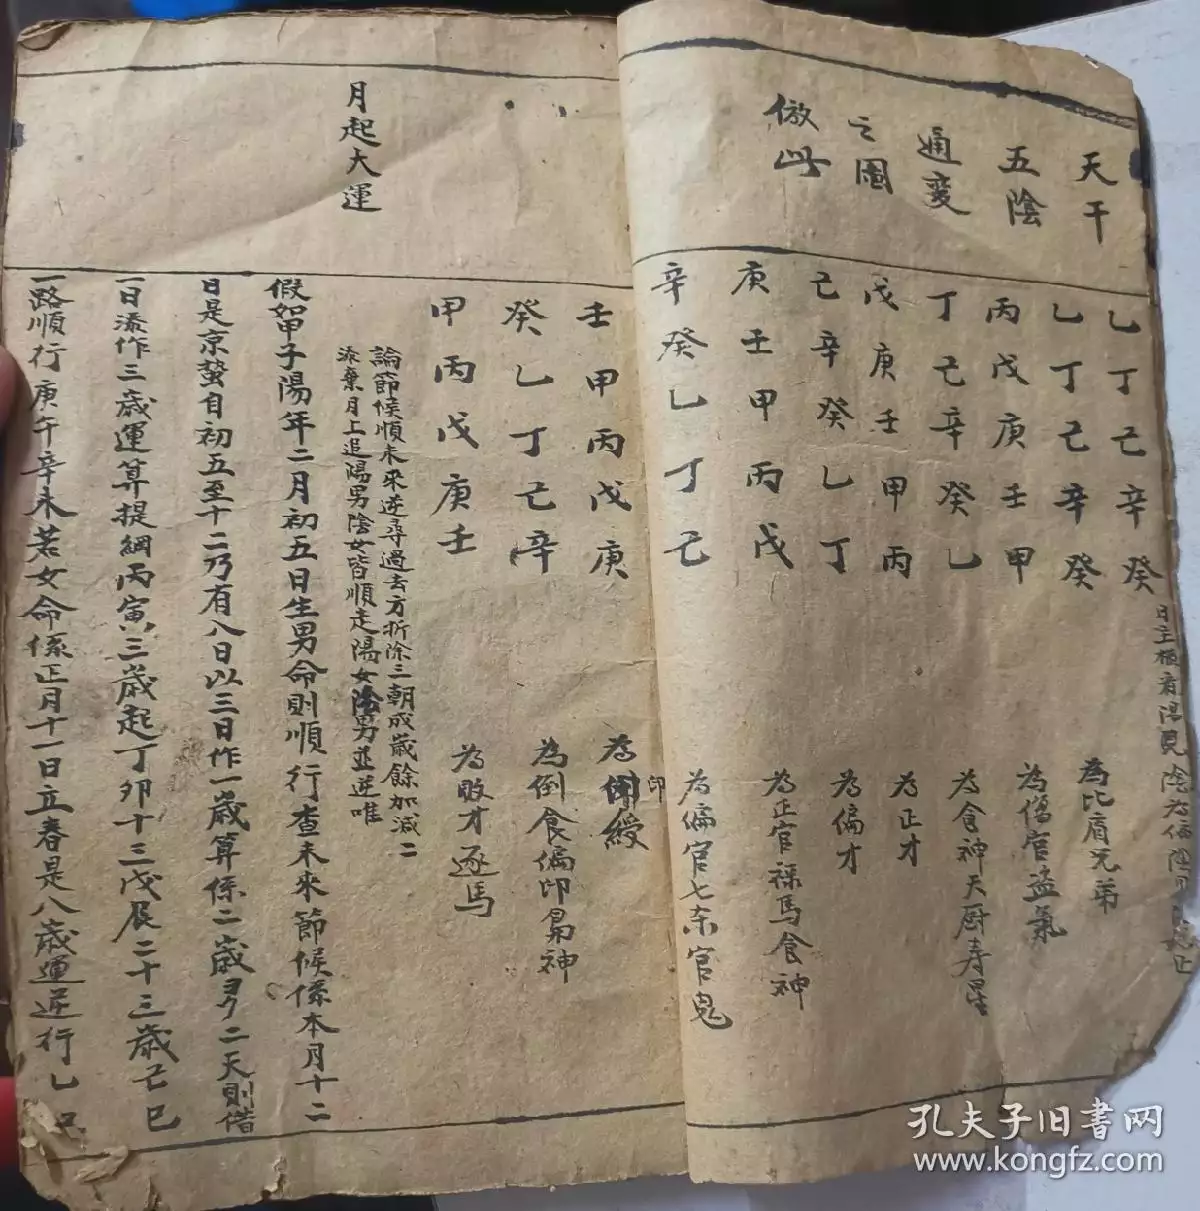 天干
五陰
通變
之圖
倣此
乙丁己辛癸
乙丁己辛癸 為比肩兄弟
丙戊庚壬甲 為傷官盗氣
丁己辛癸乙 為食神天厨寿星
戊庚壬甲丙 為正才
己辛癸乙丁 為偏才
庚壬甲丙戊 為正官祿馬食神
辛癸乙丁己 為偏官七杀官鬼
壬甲丙戊庚 為印綬
印
癸乙丁己辛 為倒食偏印梟神
甲丙戊庚壬 為敗才逐馬
月起大運
論節候順未來逆尋過去方折除三朝成歲餘加減二
添棄月上追陽男陰女皆順走陽女陰男並逆唯
假如甲子陽年二月初五日生男命則順行查未來節候係本月十二
日是京蟄自初五至十二乃有八日以三日作一歲算係二歲又二天則借
一日添作三歲運算提綱丙寅三歲起丁卯十三戊辰二十三歲己巳
一路順行庚午辛未若女命係正月十一日立春是八歲運逆行乙丑
孔夫子旧書网
www.kongfz.com